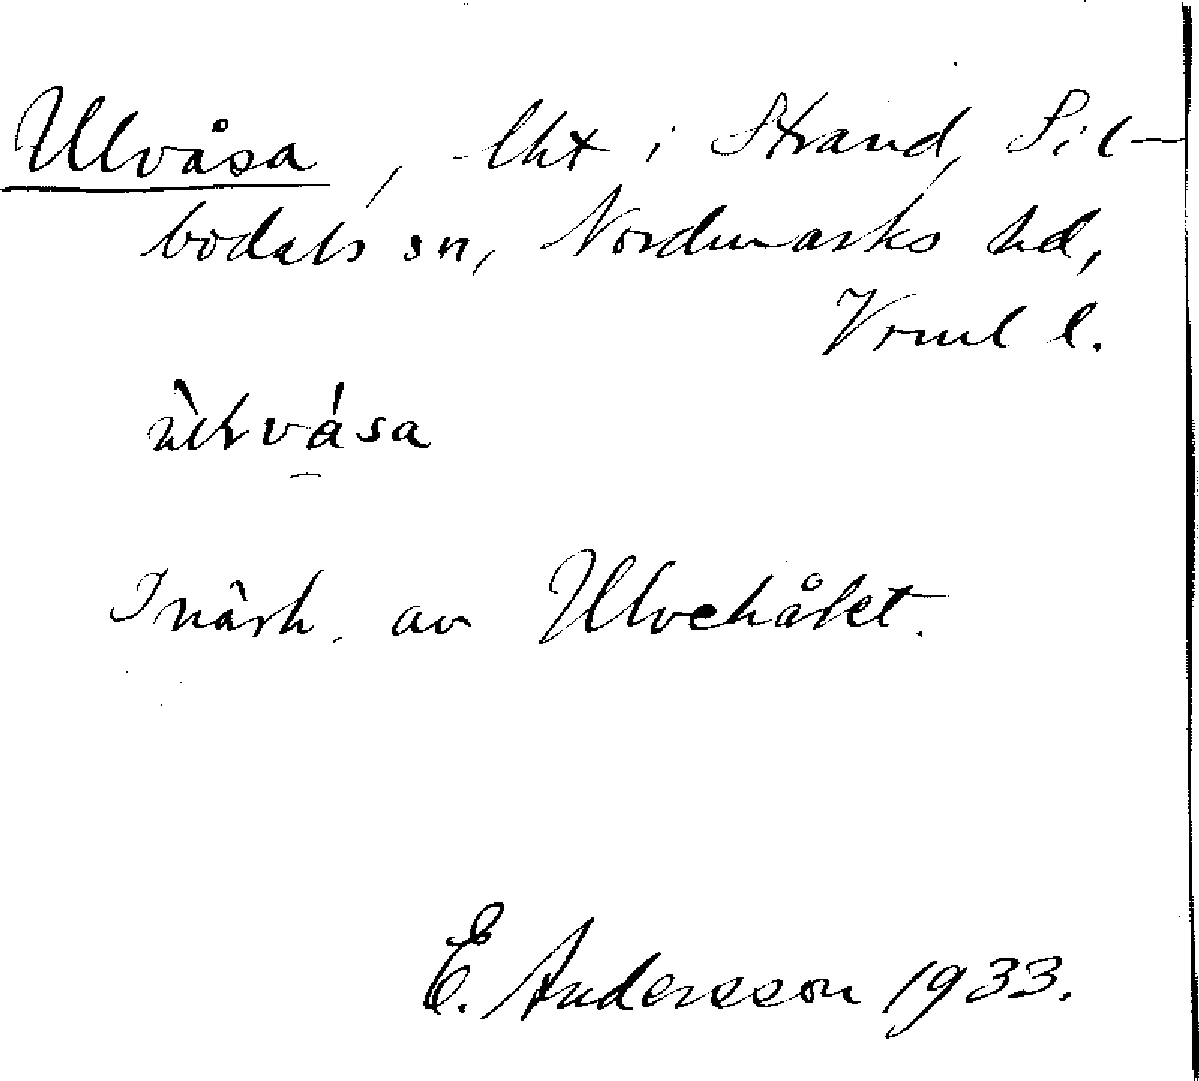 Ulvåsa, lht i Strand, Sil-
bodals sn, Nordmarks hd,
Vrml l.
I närh. av Ulvehålet.
E. Andersson 1933.